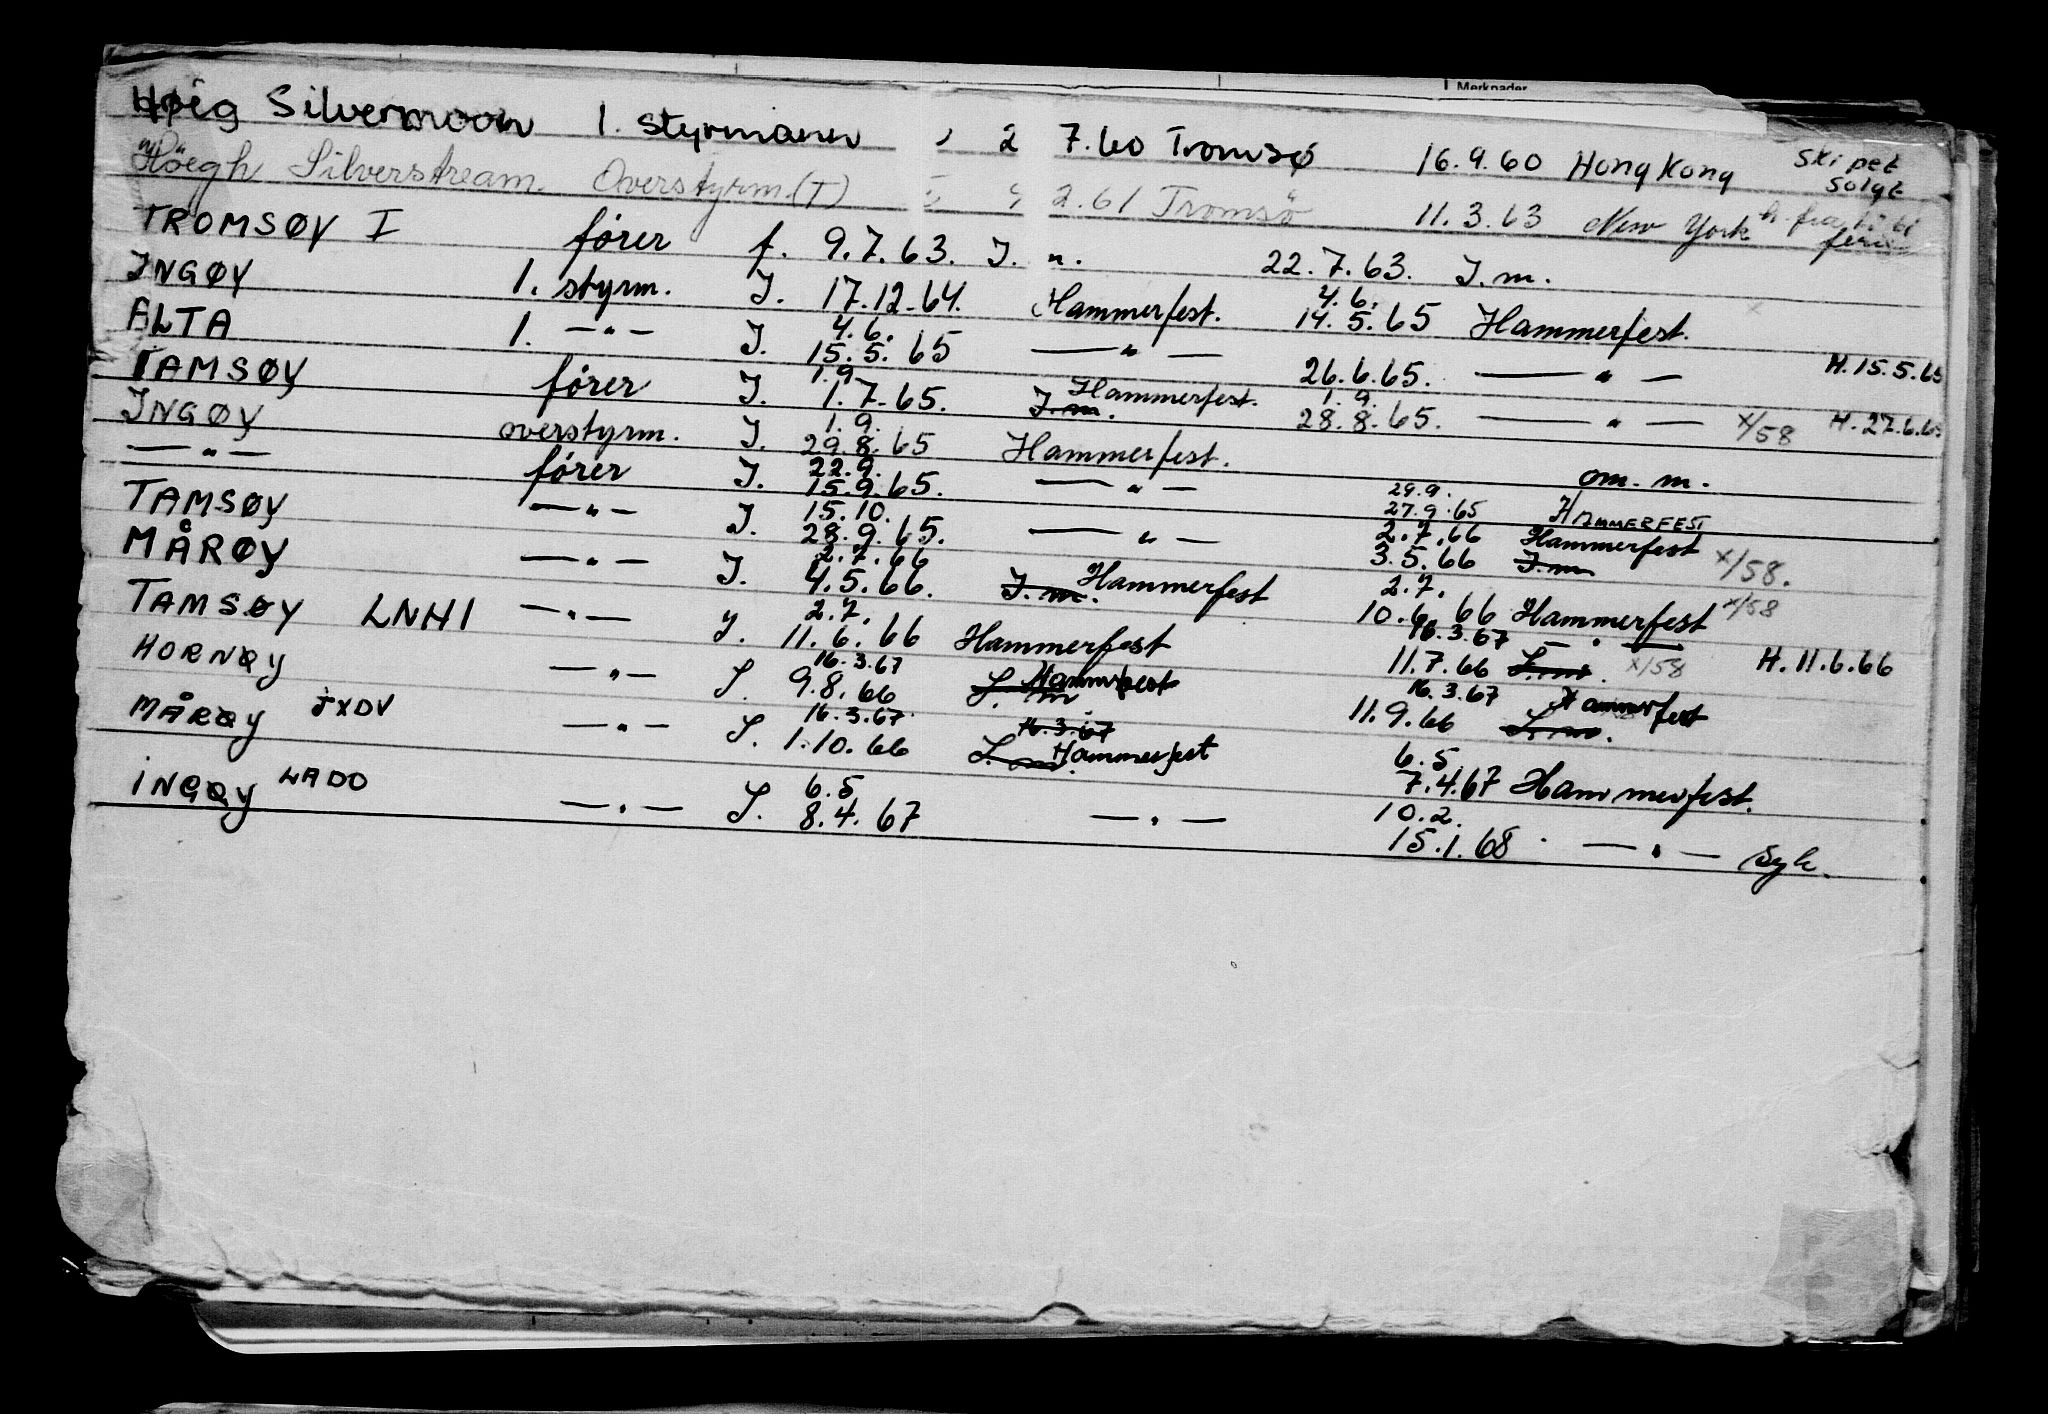 Merknader
Høeg Silvermoon 1. styrmann 2 7.60 Tromsø 16.9.60 Hong Kong Skipet solgt
Höegh Silverstream Overstyrm.(T) 2.61 Tromsö 11.3.63 New York h. fra ferie
TROMSØY I fører f. 9.7.63. J. n. 22.7.63. J.m.
INGØY 1. styrm. J. 17.12.64. Hammerfest. 4.6. 14.5.65 Hammerfest.
ALTA 1. — " — J. 4.6. 15.5.65 — " — 26.6.65. — " — H.15.5.65
TAMSØY fører J. 1.9. 1.7.65. J.m. Hammerfest. 1.9. 28.8.65. — " — x/58 H.27.6.65
INGØY overstyrm. J. 1.9. 29.8.65 Hammerfest. om. m.
— " — fører J. 22.9. 15.9.65. — " — 29.9. 27.9.65 HAMMERFEST
TAMSØY — " — J. 15.10. 28.9.65. — " — 2.7.66 3.5.66 Hammerfest J.m x/58.
MÅRØY — " — J. 2.7.66 4.5.66. J.m. Hammerfest 2.7. 10.6.66 Hammerfest x/58
TAMSØY LNHI — " — J. 2.7. 11.6.66 Hammerfest 16.3.67 — " — 11.7.66 J.m. x/58 H.11.6.66
HORNØY — " — J. 16.3.67 9.8.66 J.m Hammerfest 16.3.67 11.9.66 Hammerfest J.m.
MÅRØY JXDV — " — J. 16.3.67. 1.10.66 16.3.67 J.m. Hammerfest 6.5. 7.4.67 Hammerfest.
INGØY LADO — " — J. 6.5 8.4.67 — " — 10.2. 15.1.68 — " — Syk.